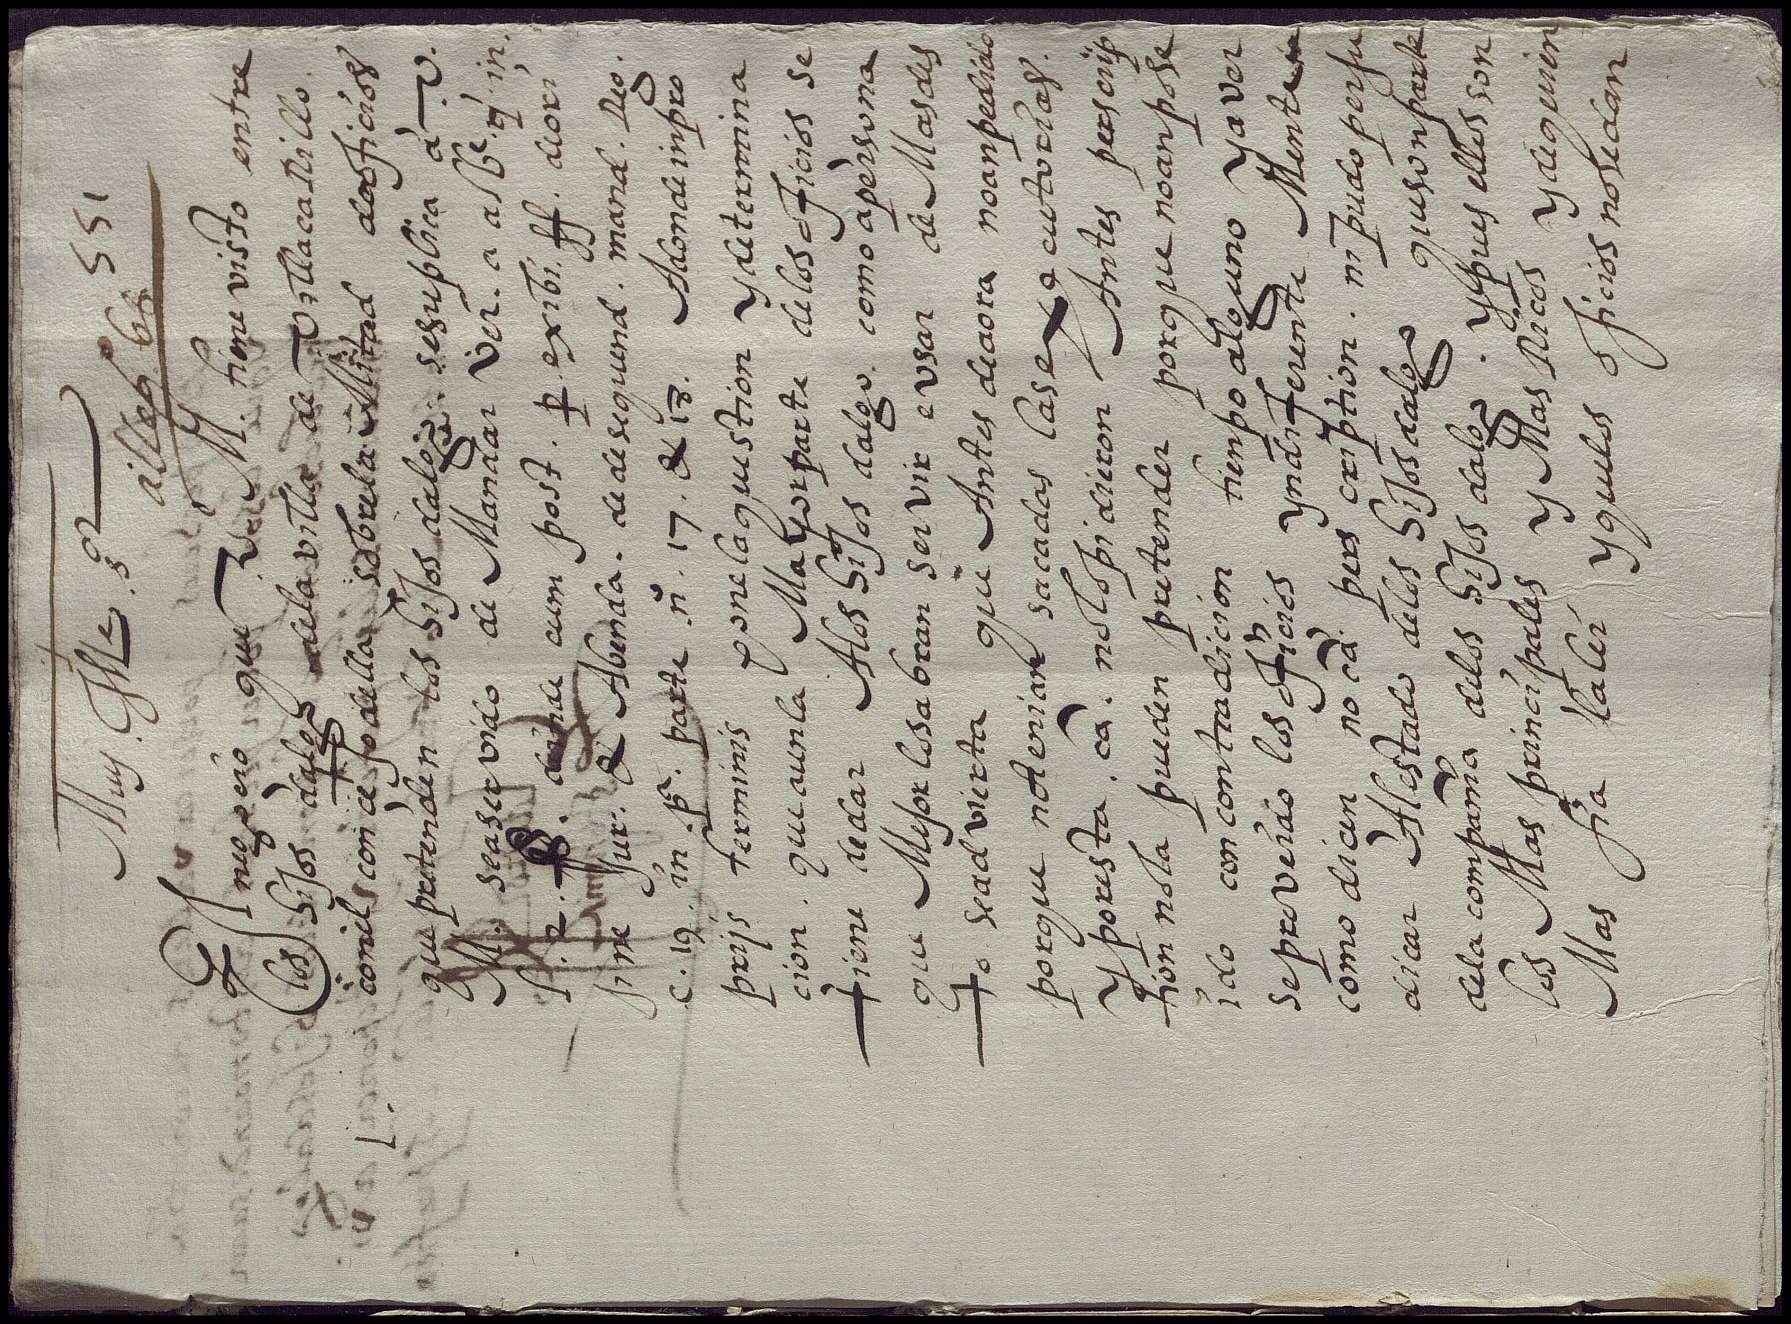 551
Muy Ille. sor
El negocio que V. M. tiene visto entre
los hijos dalgo de la villa de Villacarrillo.
con el concejo della sobre la Mitad de oficios
que pretenden los hijos dalgo. se suplica a V.
M. sea servido de Mandar ver. a alb.
l. 2. donde cum post. exibi. ff. de ori
sine Jur. & Abenda. de desequend. mand. Reg.
c. 19. in. pª. parte. n. 17. & 18. Adonde in pro
prijs terminis pone la question y determina
cion. que aun la Mayor parte de los oficios se
tiene de dar A los hijos dalgo. como a persona
que Mejor los abran servir e usar de Mas des
to se advierta que Antes de aora no an pedido
porque no tenian sacadas las executorias.
y por esta cã. no los pidieron / Antes perscrip
tion nola pueden pretender porque no an pose
ido con contradicion tiempo alguno y a ver
se proveido los oficios yndiferente Mente
como dicen no cã. perscription. ni pudo perju
dicar Al estado de los hijos dalgo que son parte
de la compañia de los hijos dalgo. y pues ellos son
los Mas principales y Mas Ricos y de quien
Mas se a hacer y que les oficios no se dan